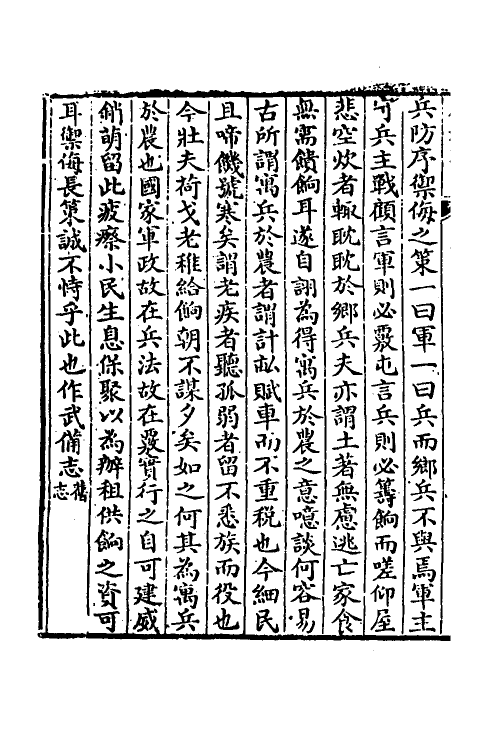 兵防序禦侮之策一曰軍一曰兵而鄉兵不與焉軍主
守兵主戰顧言軍則必覈屯言兵則必籌餉而嗟仰屋
悲空炊者輒眈眈於鄉兵夫亦謂土著無慮逃亡家食
無需饋餉耳遂自詡為得寓兵於農之意噫談何容易
古所謂寓兵於農者謂計畝賦車而不重税也今細民
且啼饑號寒矣謂老疾者聽孤弱者留不悉族而役也
今壯夫荷戈老稚給餉朝不謀夕矣如之何其為寓兵
於農也國家軍政故在兵法故在覈實行之自可建威
銷萌留此疲瘵小民生息保聚以為辦租供餉之資可
耳禦侮長策誠不恃乎此也作武備志舊志